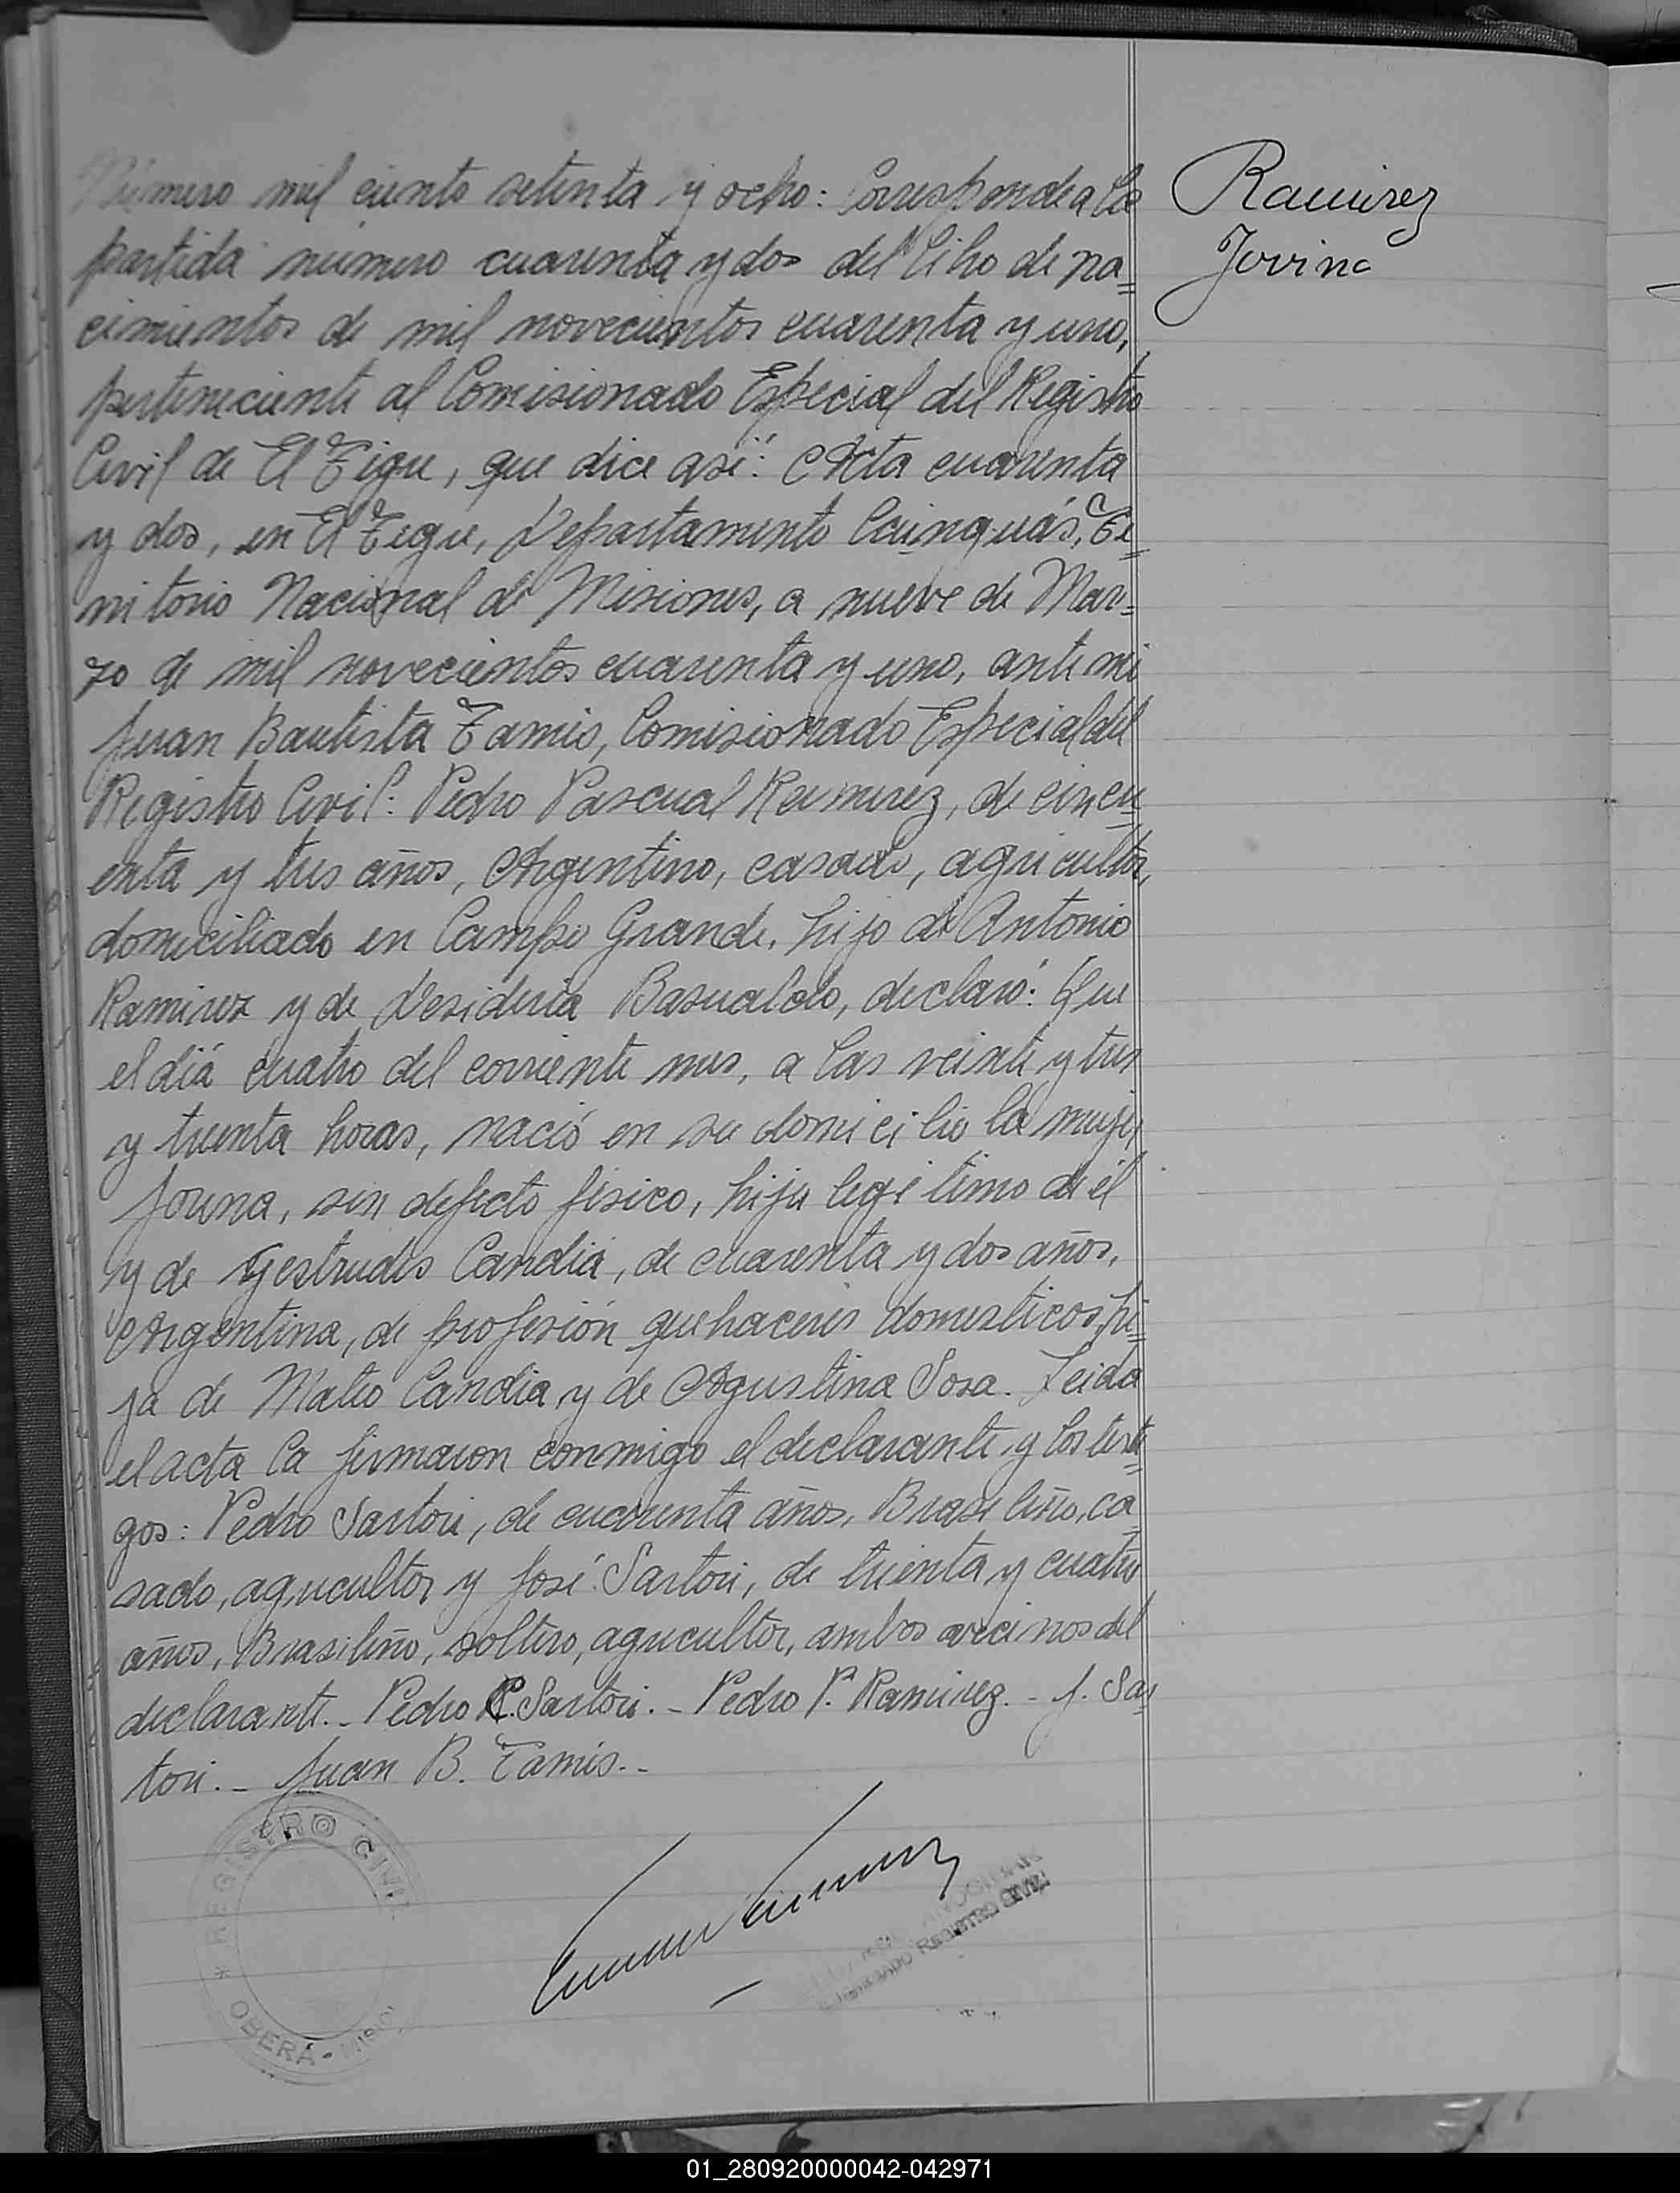 Número mil ciento setenta y ocho: Corresponde a la
partida número cuarenta y dos del Libro de na=
cimientos de mil novecientos cuarenta y uno,
perteneciente al Comisionado Especial del Registro
Civil de El Tigre, que dice así: Acta cuarenta
y dos, en El Tigre, Departamento Cainguás, Te=
rritorio Nacional de Misiones, a nueve de Mar=
zo de mil novecientos cuarenta y uno, ante mi
Juan Bautista Tamis, Comisionado Especial del
Registro Civil: Pedro Pascual Ramirez, de cincu=
enta y tres años, Argentino, casado, agricultor,
domiciliado en Campo Grande, hijo de Antonio
Ramirez y de Desideria Basualdo, declaró: Que
el diá cuatro del corriente mes, a las veinte y tres
y treinta horas, nació en su domicilio la mujer
Jovina, sin defecto fisico, hija legitimo de él
y de Gestrudis Candia, de cuarenta y dos años,
Argentina, de profesión quehaceres domesticos, hi=
ja de Mateo Candia y de Agustina Sosa. Leida
el acta la firmaron conmigo el declarante y los testi=
gos: Pedro Sartori, de cuarenta años, Brasileño, ca=
sado, agricultor y José Sartori, de treinta y cuatro
años, Brasileño, soltero, agricultor, ambos vecinos del
declarante.- Pedro C. Sartori.- Pedro P. Ramirez.- J. Sar=
tori.- Juan B. Tamis.-
Ramirez
Jovina
* REGISTRO CIVIL
OBERÁ -
REGISTRO CIVIL
01_280920000042-042971